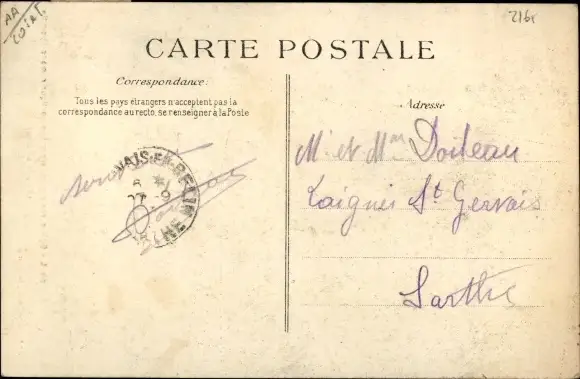 CARTE POSTALE
Correspondance:
Tous les pays étrangers n'acceptent pas la
correspondance au recto, se renseigner à la Poste
Adresse
M. et Mme Doiteau
Laigné St Gervais
Sarthe
VAIS-EN-BELIN